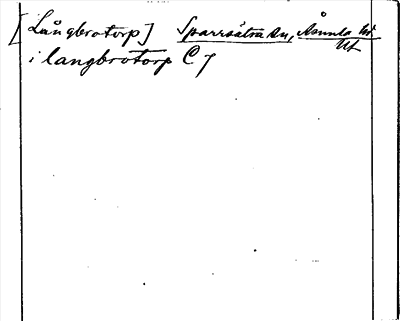 [Långbrotorp] Sparrsätra sn, Åsunda hd
Up
i langbrotorp C 7